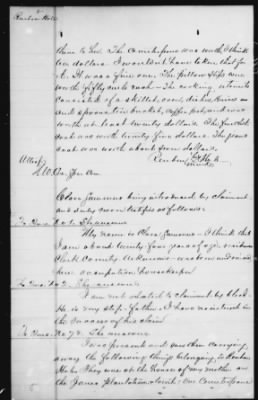 them to her. The counterpane was worth, I think
ten dollars. I wouldn't have taken that for
it. It was a fine one. The pillow slips were
worth fifty cents each. The cooking utensils
consisted of a skillet, oven, dishes, knives
worth at least twenty dollars. The
was worth twenty five dollars. The
was worth about seven dollars.
Reuben his mark
Attest
Clara Simmons being introduced by claimant
and duly sworn testifies as follows:
To Ques. No 1 she answers
My name is Clara Simmons. I think that
I am about twenty four years of age. reside in
County, Arkansas. was born and raised
here. occupation housekeeper
To Ques. No 2. She answers
I am not related to claimant by blood.
He is my step-father. I have no interest in
the success of his claim
To Ques. No 7 2. She answers
I was present and saw them carrying
away the following things belonging to Reuben
They were at the house of my mother on
the Jones Plantation to wit: One Counterpane